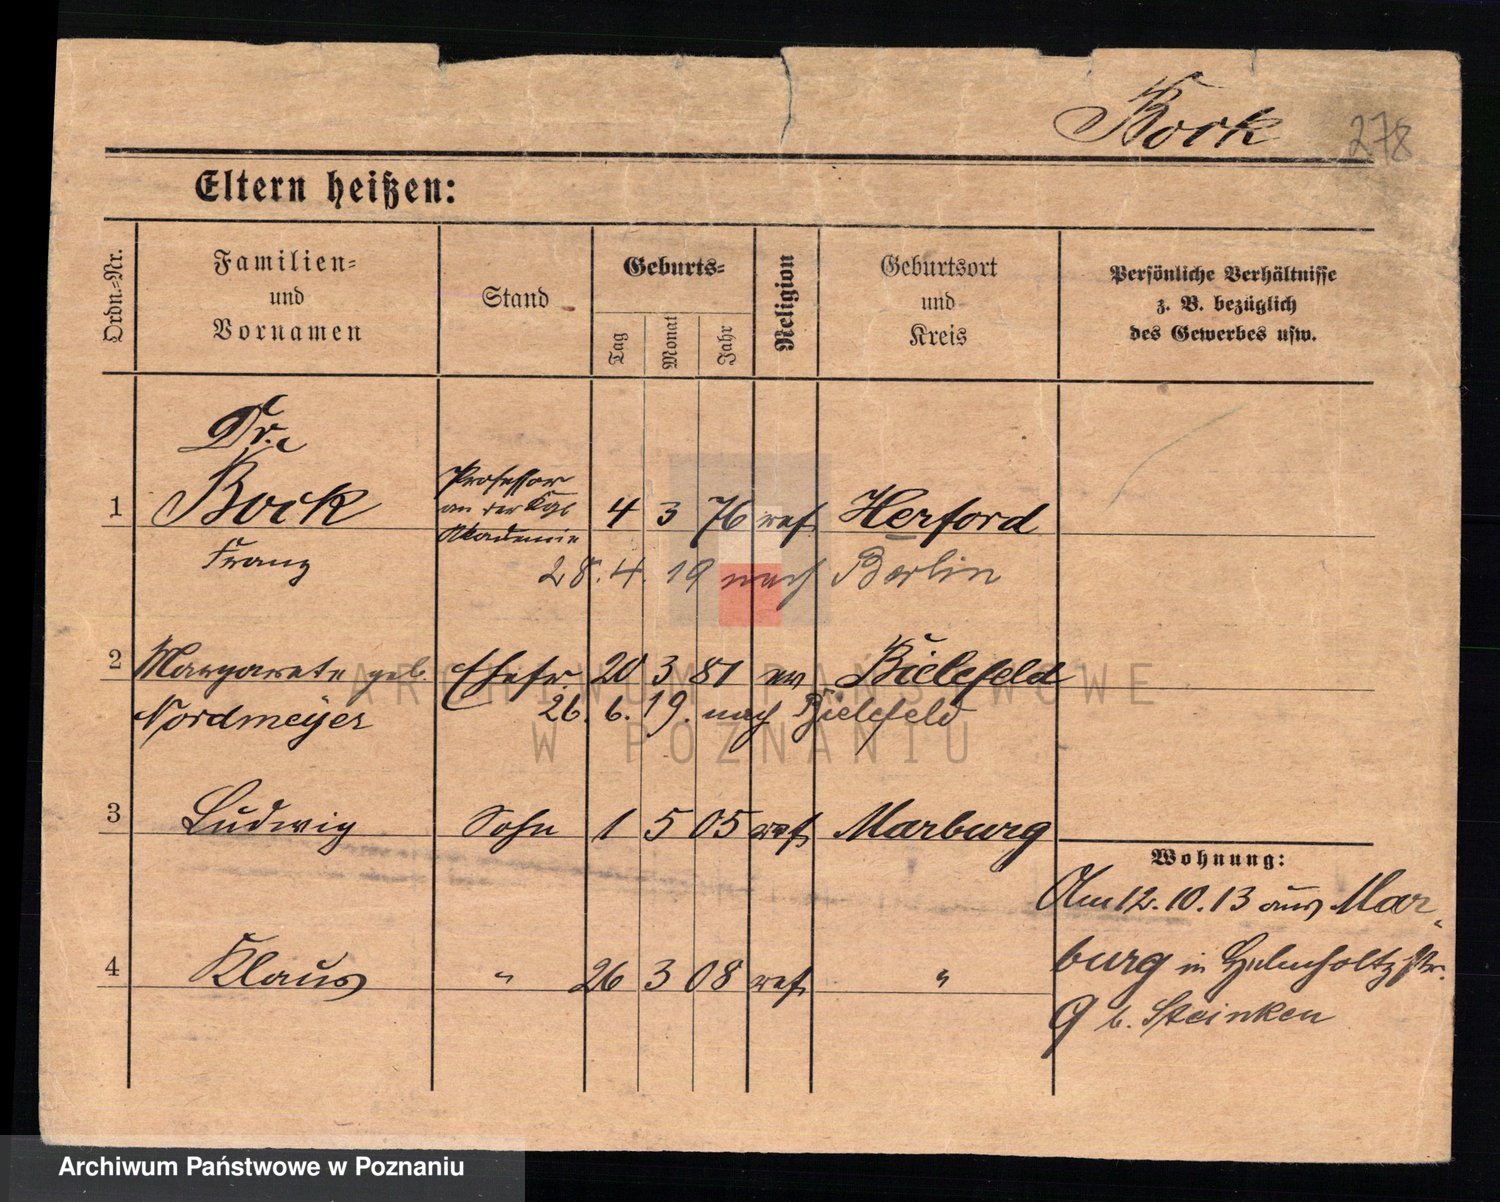 Bock 278
Eltern heißen:
Ordn.-Nr.
Familien-
und
Vornamen
Stand
Geburts-
Tag
Monat
Jahr
Religion
Geburtsort
und
Kreis
Persönliche Verhältnisse
z. B. bezüglich
des Gewerbes usw.
Dr.
1 Bock Professor an der Kgl Akademie 4 3 76 ref. Herford
Franz
28. 4. 19 nach Berlin
2 Margarete geb. Ehefr. 20 3 81 ev Bielefeld
Nordmeyer 26. 6. 19. nach Bielefeld
3 Ludwig Sohn 1 5 05 ref. Marburg
Wohnung:
Am 12. 10. 13 aus Mar-
4 Klaus " 26 3 08 ref. "
burg in Helmholtzstr.
9 b. Steinken
ARCHIWUM PAŃSTWOWE
W POZNANIU
Archiwum Państwowe w Poznaniu